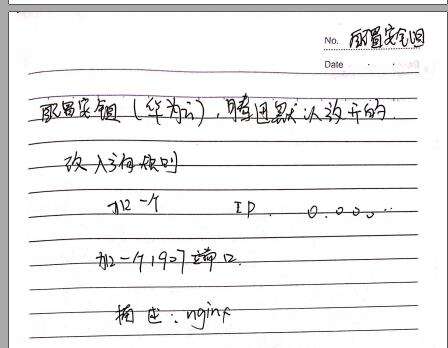 No. 配置安全组
Date
配置安全组(华为云),腾讯默认放开的
改入方向规则
加一个 IP. 0.0.0.0
加一个1907端口.
描述:nginx